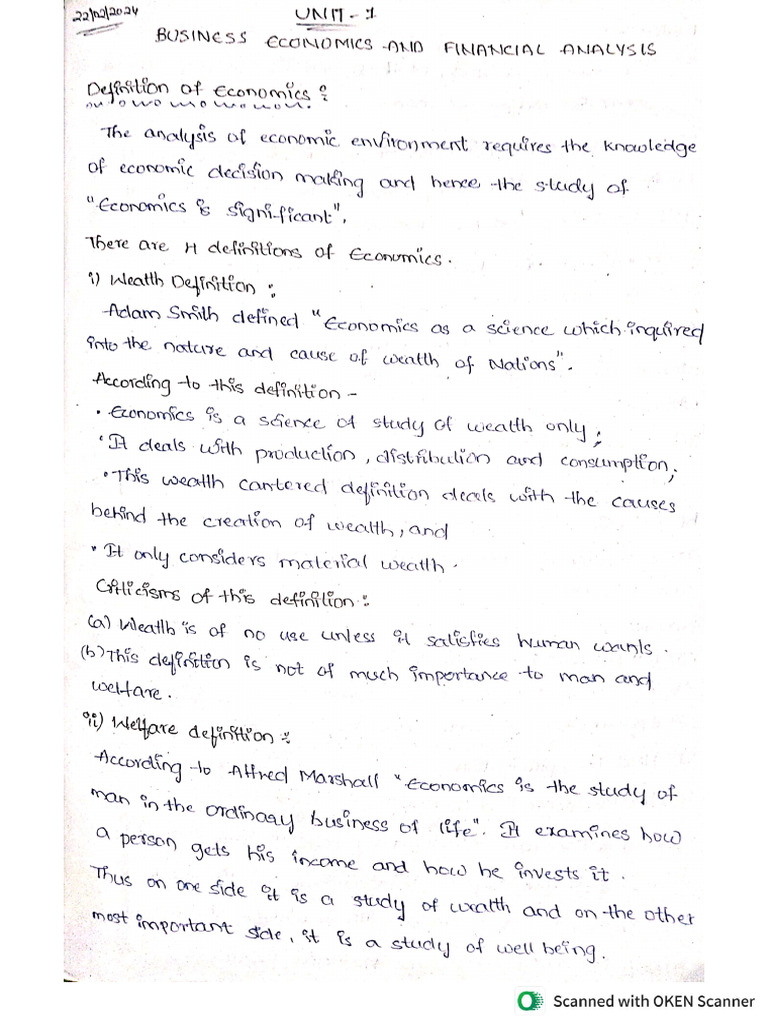 22/02/2024
UNIT-1
BUSINESS ECONOMICS AND FINANCIAL ANALYSIS
Definition of Economics :
The analysis of economic environment requires the knowledge
of economic decision making and hence the study of
"Economics is significant".
There are 4 definitions of Economics.
i) Wealth Definition :
Adam Smith defined "Economics as a science which inquired
into the nature and cause of wealth of Nations".
According to this definition -
• Economics is a science of study of wealth only;
• It deals with production, distribution and consumption;
• This wealth cantered definition deals with the causes
behind the creation of wealth, and
• It only considers material wealth.
Criticisms of this definition :
(a) Wealth is of no use unless it satisfies human wants.
(b) This definition is not of much importance to man and
welfare.
ii) Welfare definition :
According to Alfred Marshall "Economics is the study of
man in the ordinary business of life". It examines how
a person gets his income and how he invests it.
Thus on one side it is a study of wealth and on the other
most important side, it is a study of well being.
Scanned with OKEN Scanner